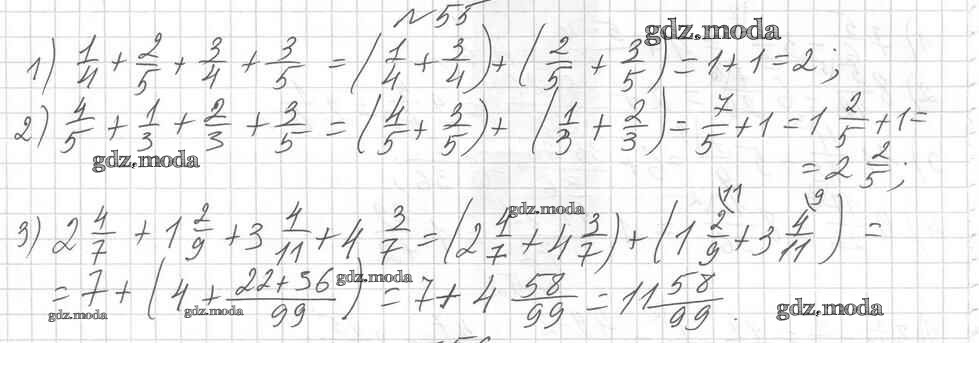 №55
gdz.moda
1) 1/4 + 2/5 + 3/4 + 3/5 = (1/4 + 3/4) + (2/5 + 3/5) = 1 + 1 = 2;
2) 4/5 + 1/3 + 2/3 + 3/5 = (4/5 + 3/5) + (1/3 + 2/3) = 7/5 + 1 = 1 2/5 + 1 =
gdz.moda
= 2 2/5;
gdz.moda
3) 2 4/7 + 1 2/9 + 3 4/11 + 4 3/7 = (2 4/7 + 4 3/7) + (1 2/9 \11 + 3 4/11 \9) =
= 7 + (4 + (22+36)/99) = 7 + 4 58/99 = 11 58/99.
gdz.moda
gdz.moda
gdz.moda
gdz.moda